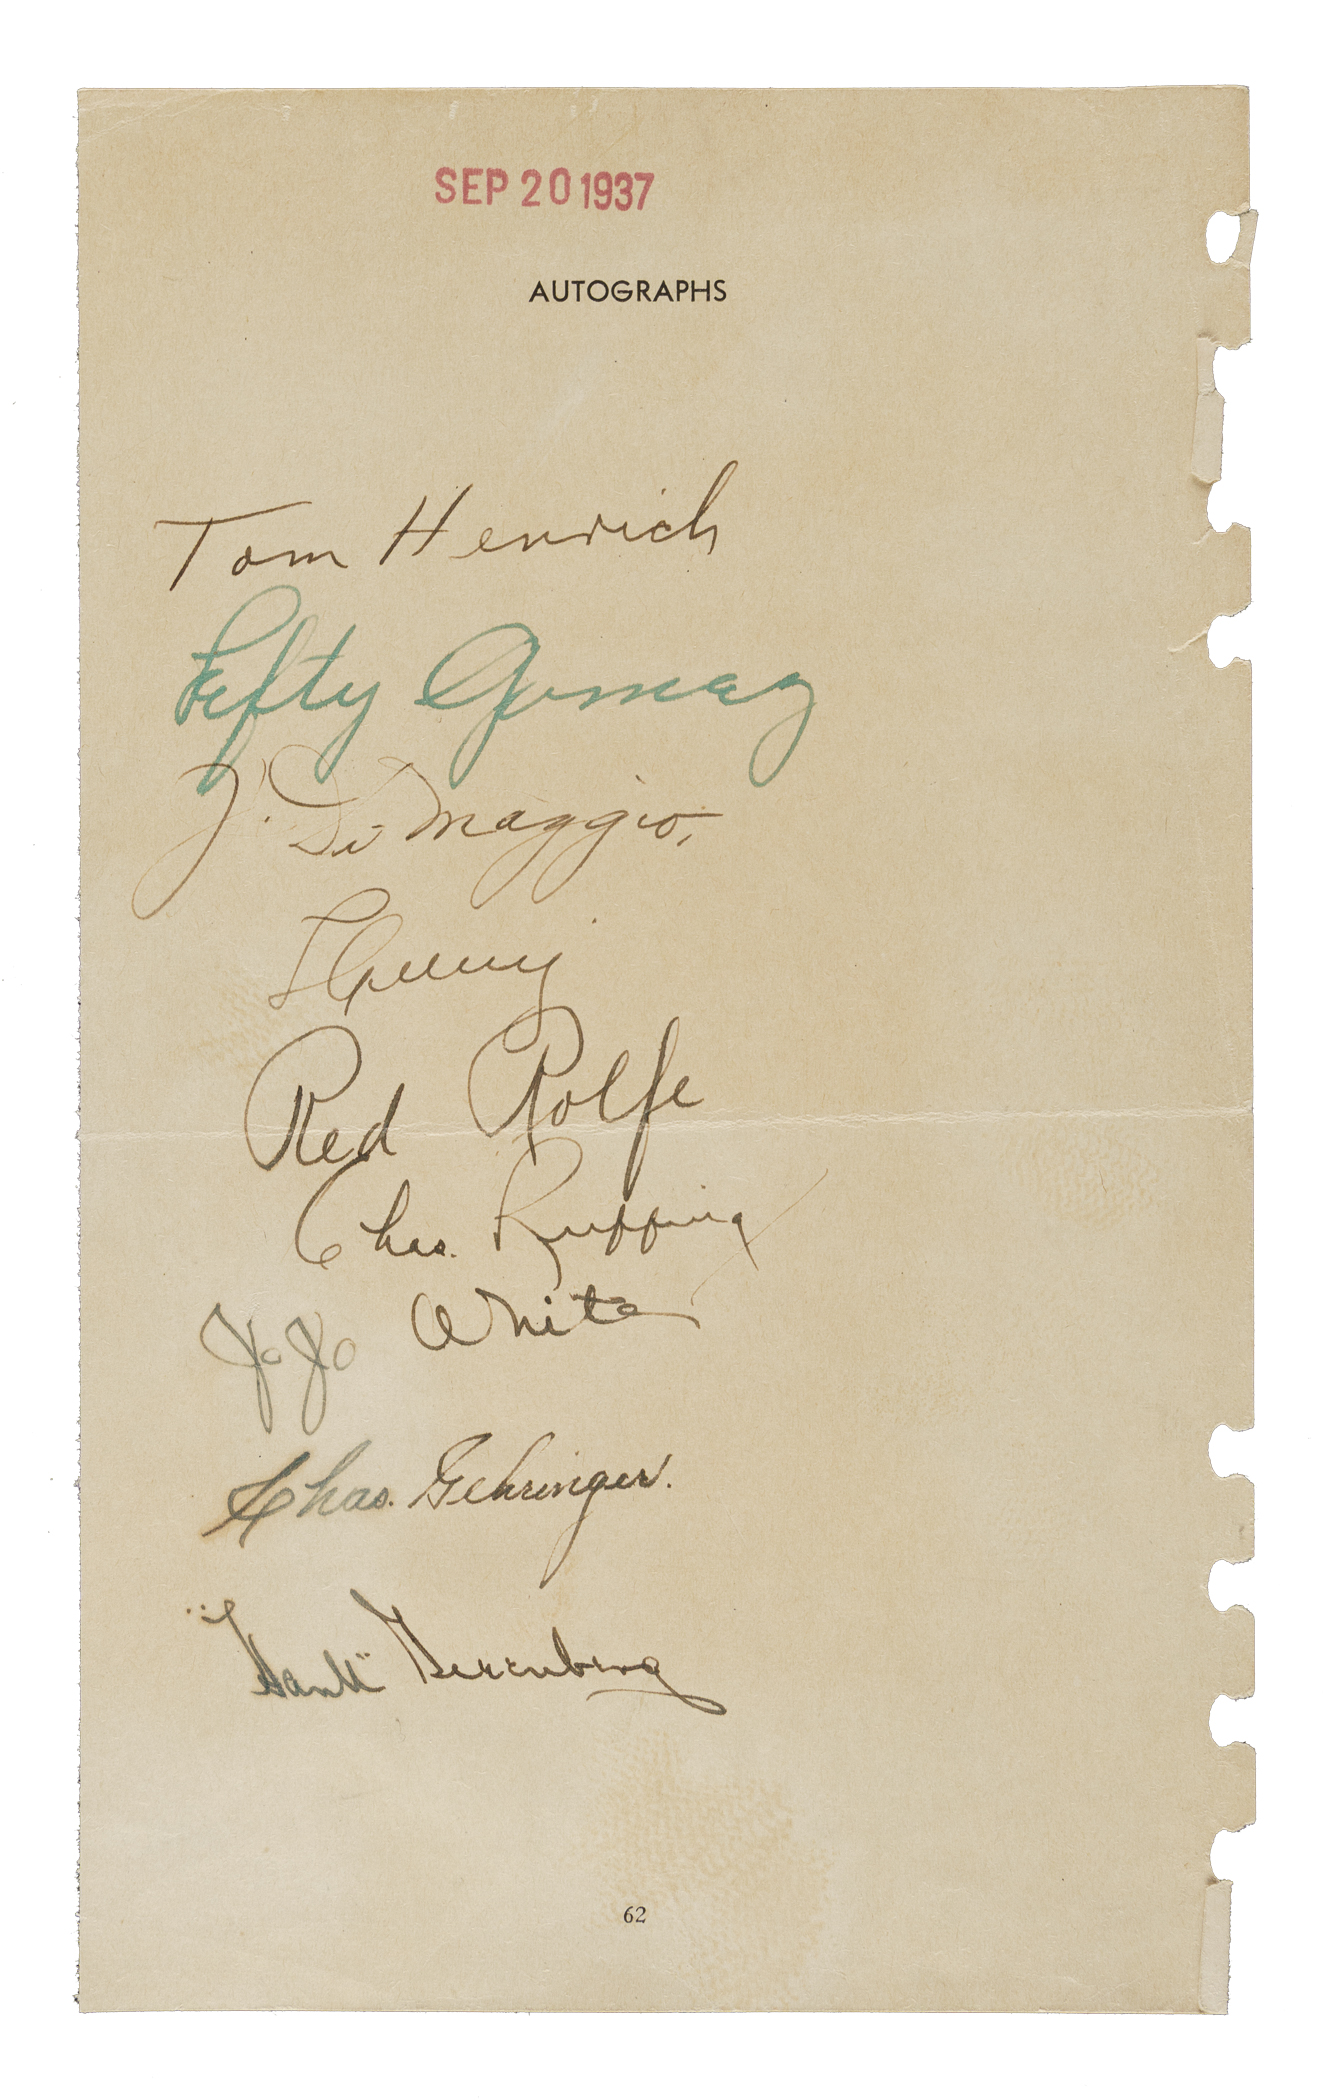 SEP 20 1937
AUTOGRAPHS
Tom Henrich
Lefty Gomez
J. Di Maggio.
Red Rolfe
Chas. Ruffing
JoJo White
Chas. Gehringer.
"Hank" Greenberg
62